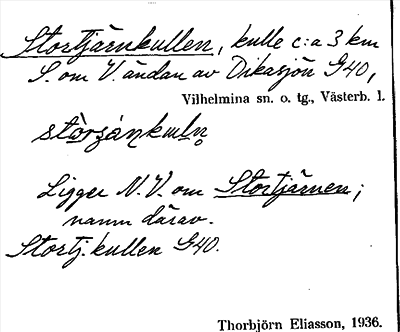 Stortjärnkullen, kulle c:a 3 km
S. om V. ändan av Dikasjön G40,
Vilhelmina sn. o. tg., Västerb. l.
Ligger N.V. om Stortjärnen;
namn därav.
Stortj. kullen G40.
Thorbjörn Eliasson, 1936.